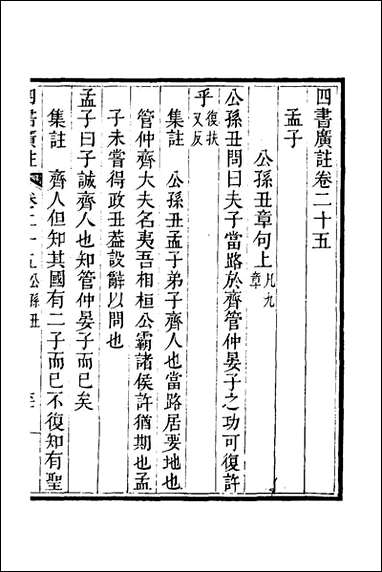 四書廣註卷二十五
孟子
公孫丑章句上凡九章
公孫丑問曰夫子當路於齊管仲晏子之功可復許
乎復扶又反
集註　公孫丑孟子弟子齊人也當路居要地也
管仲齊大夫名夷吾相桓公霸諸侯許猶期也孟
子未嘗得政丑葢設辭以問也
孟子曰子誠齊人也知管仲晏子而已矣
集註　齊人但知其國有二子而已不復知有聖
四書廣註　卷二十五公孫丑